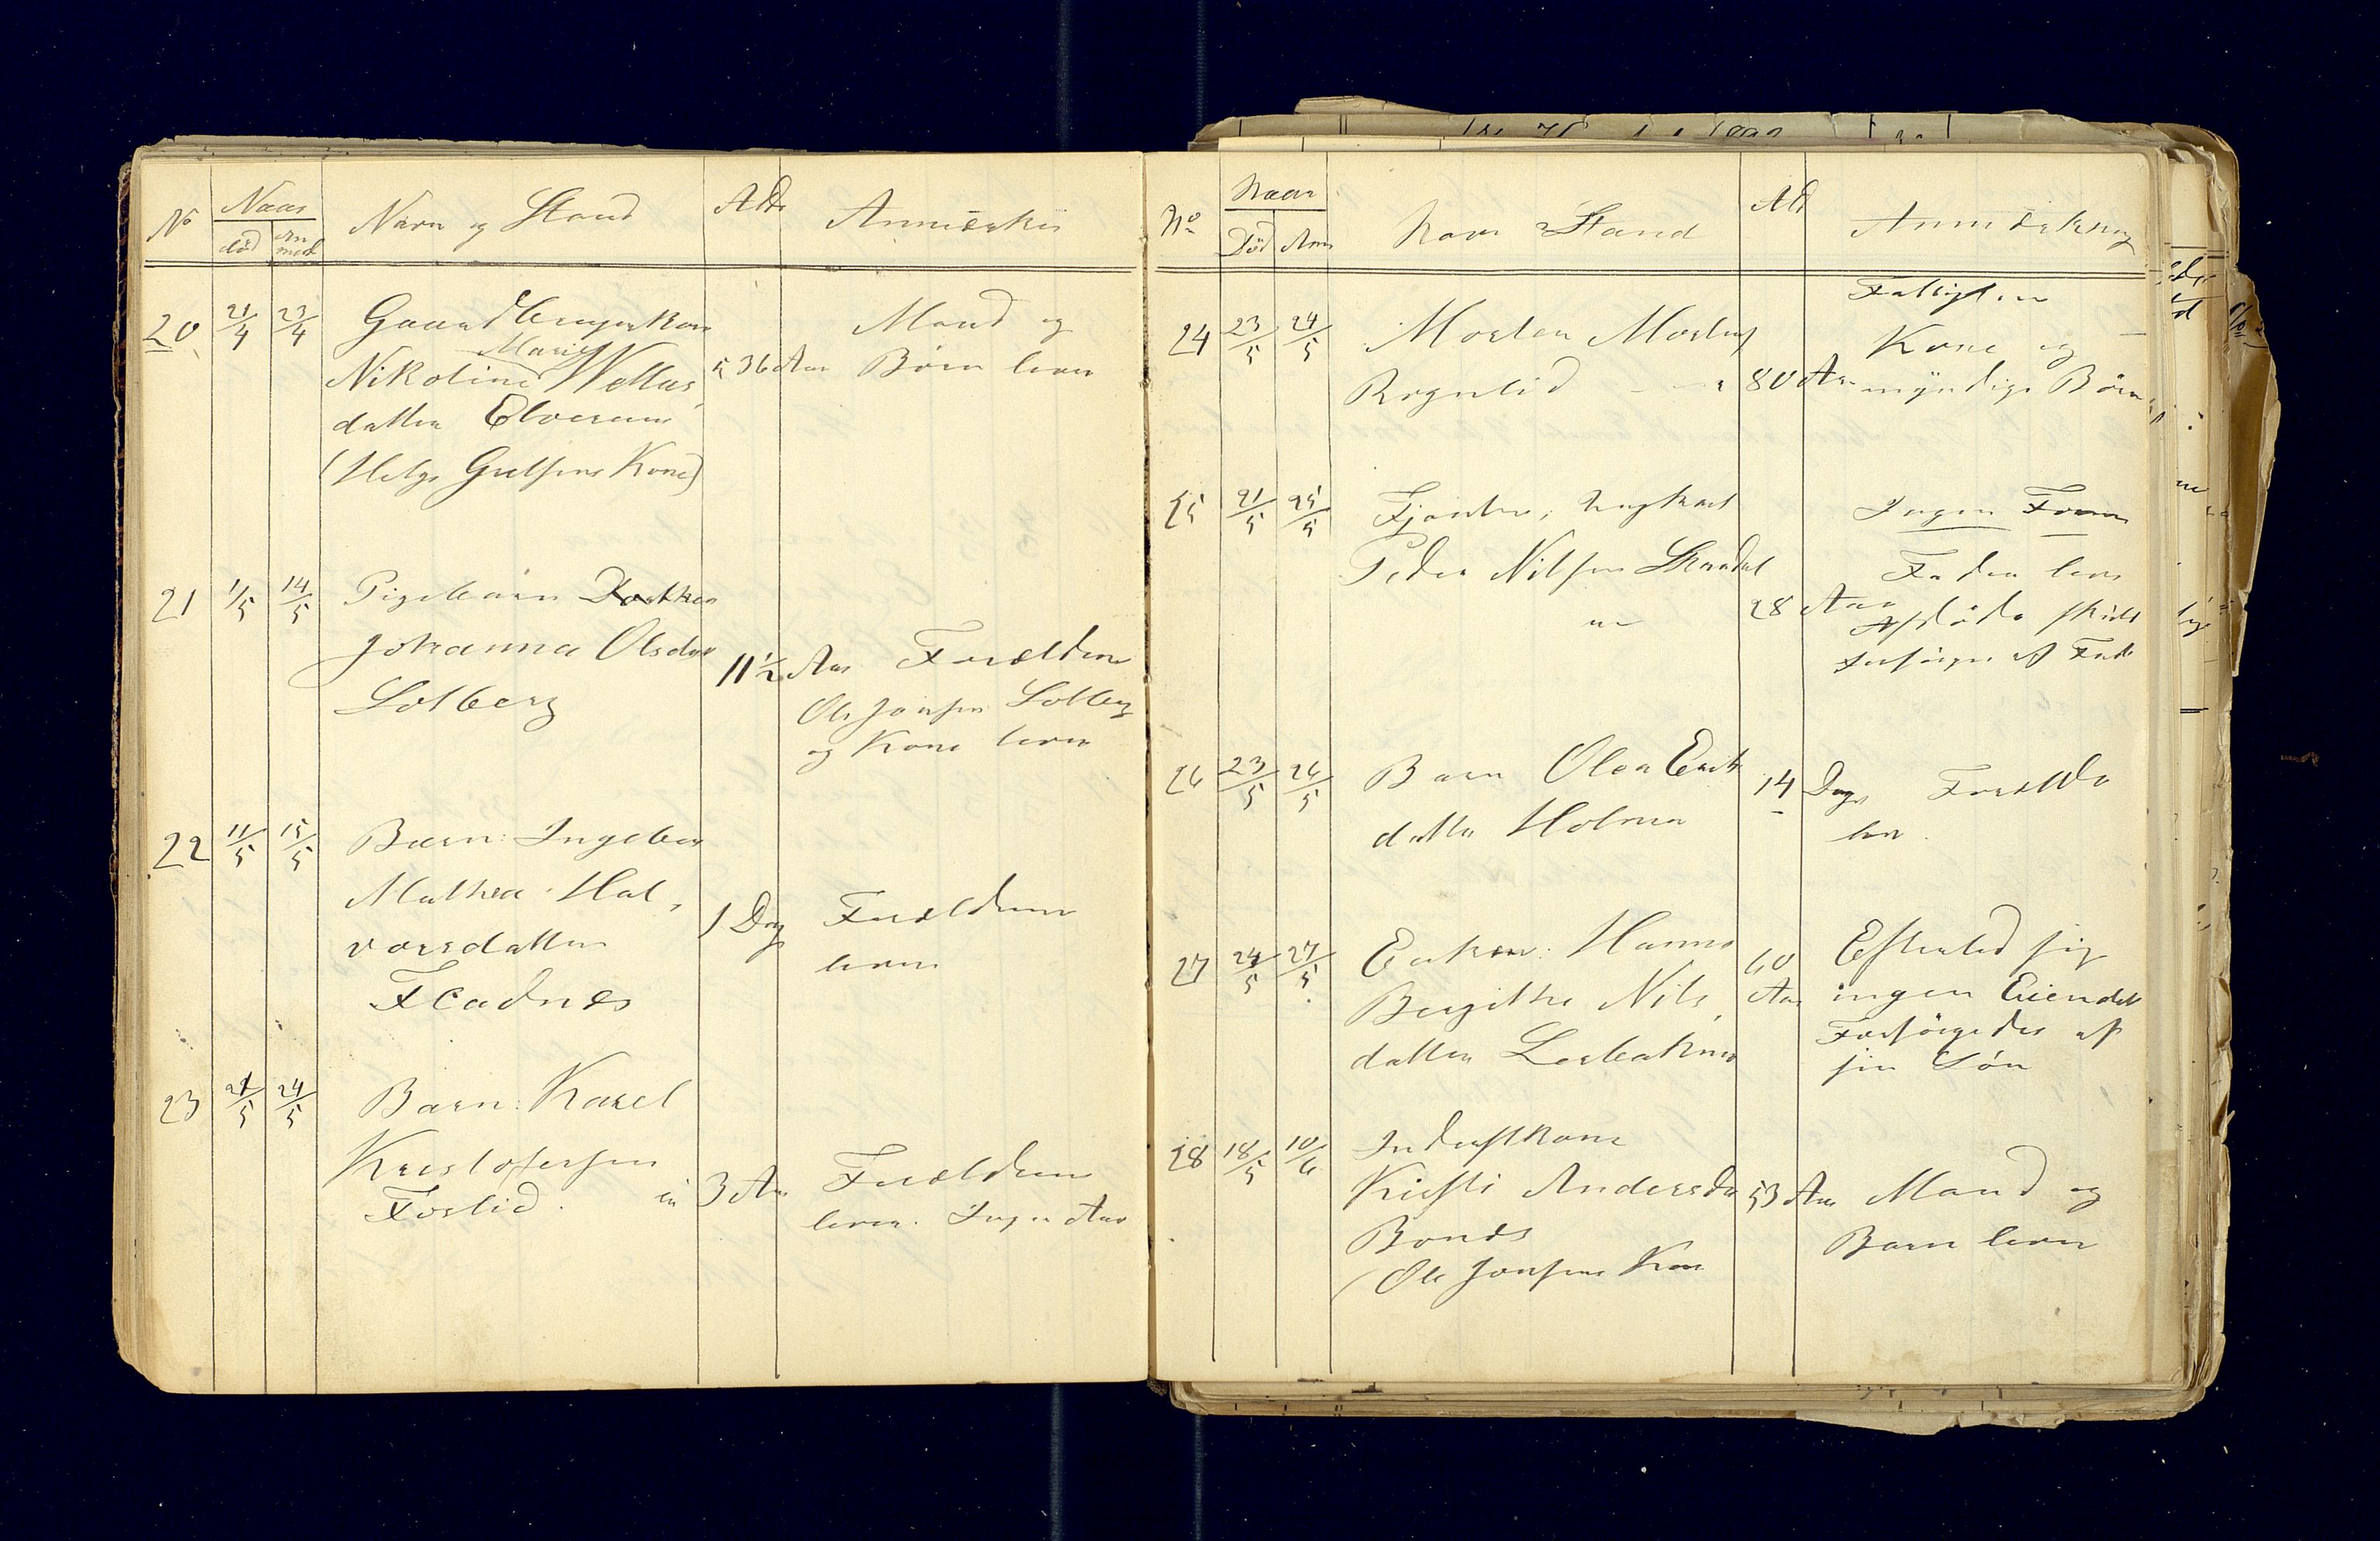 No Naar Navn og Stand Alder Anmærkn
død An
meld
20 21/4 23/4 Gaardbrugerkone Mand og
Marie
Nikoline 36 Aar Børn lever
datter Elverum
(Helge Gulsens Kone)
21 1/5 14/5 Pigebarn Dorthea
Johanna Olsdat 11½ Aar Forældrene
Solberg Ole Jonsen Solberg
og Kone lever
22 11/5 15/5 Barn: Ingebor
Mathea Hal,
vorsdatter 1 Dag Forældrene
Fladnes lever
23 21/5 24/5 Barn: Karel
Kristofersen 3 Aar Forældrene
Foslid lever. Ingen Arv
No Naar Navn Stand Ald Anmærkning
Død Anm
Fattiglem
24 23/5 24/5 Morten Mortens Kone og
Rognlid 80 Aar myndige Børn
25 21/5 25/5 Tjenter, Ungkarl Ingen Form
Peder Nilsen Fader lever
28 Aar Afdøde
forsørge af Fade
26 23/5 26/5 Barn Olea Erik 14 Dage Foreldre
datter Holmen lev.
27 24/5 27/5 Enken: Hanna 60 Efterlod sig
Bergitha Nils, Aar ingen Eiendele
datter Forsørgedes af
sin Søn
28 18/5 10/6 Inderstkone
Kirsti Andersda 53 Aar Mand og
Bones Barn lever
(Ole Jonsens Kone